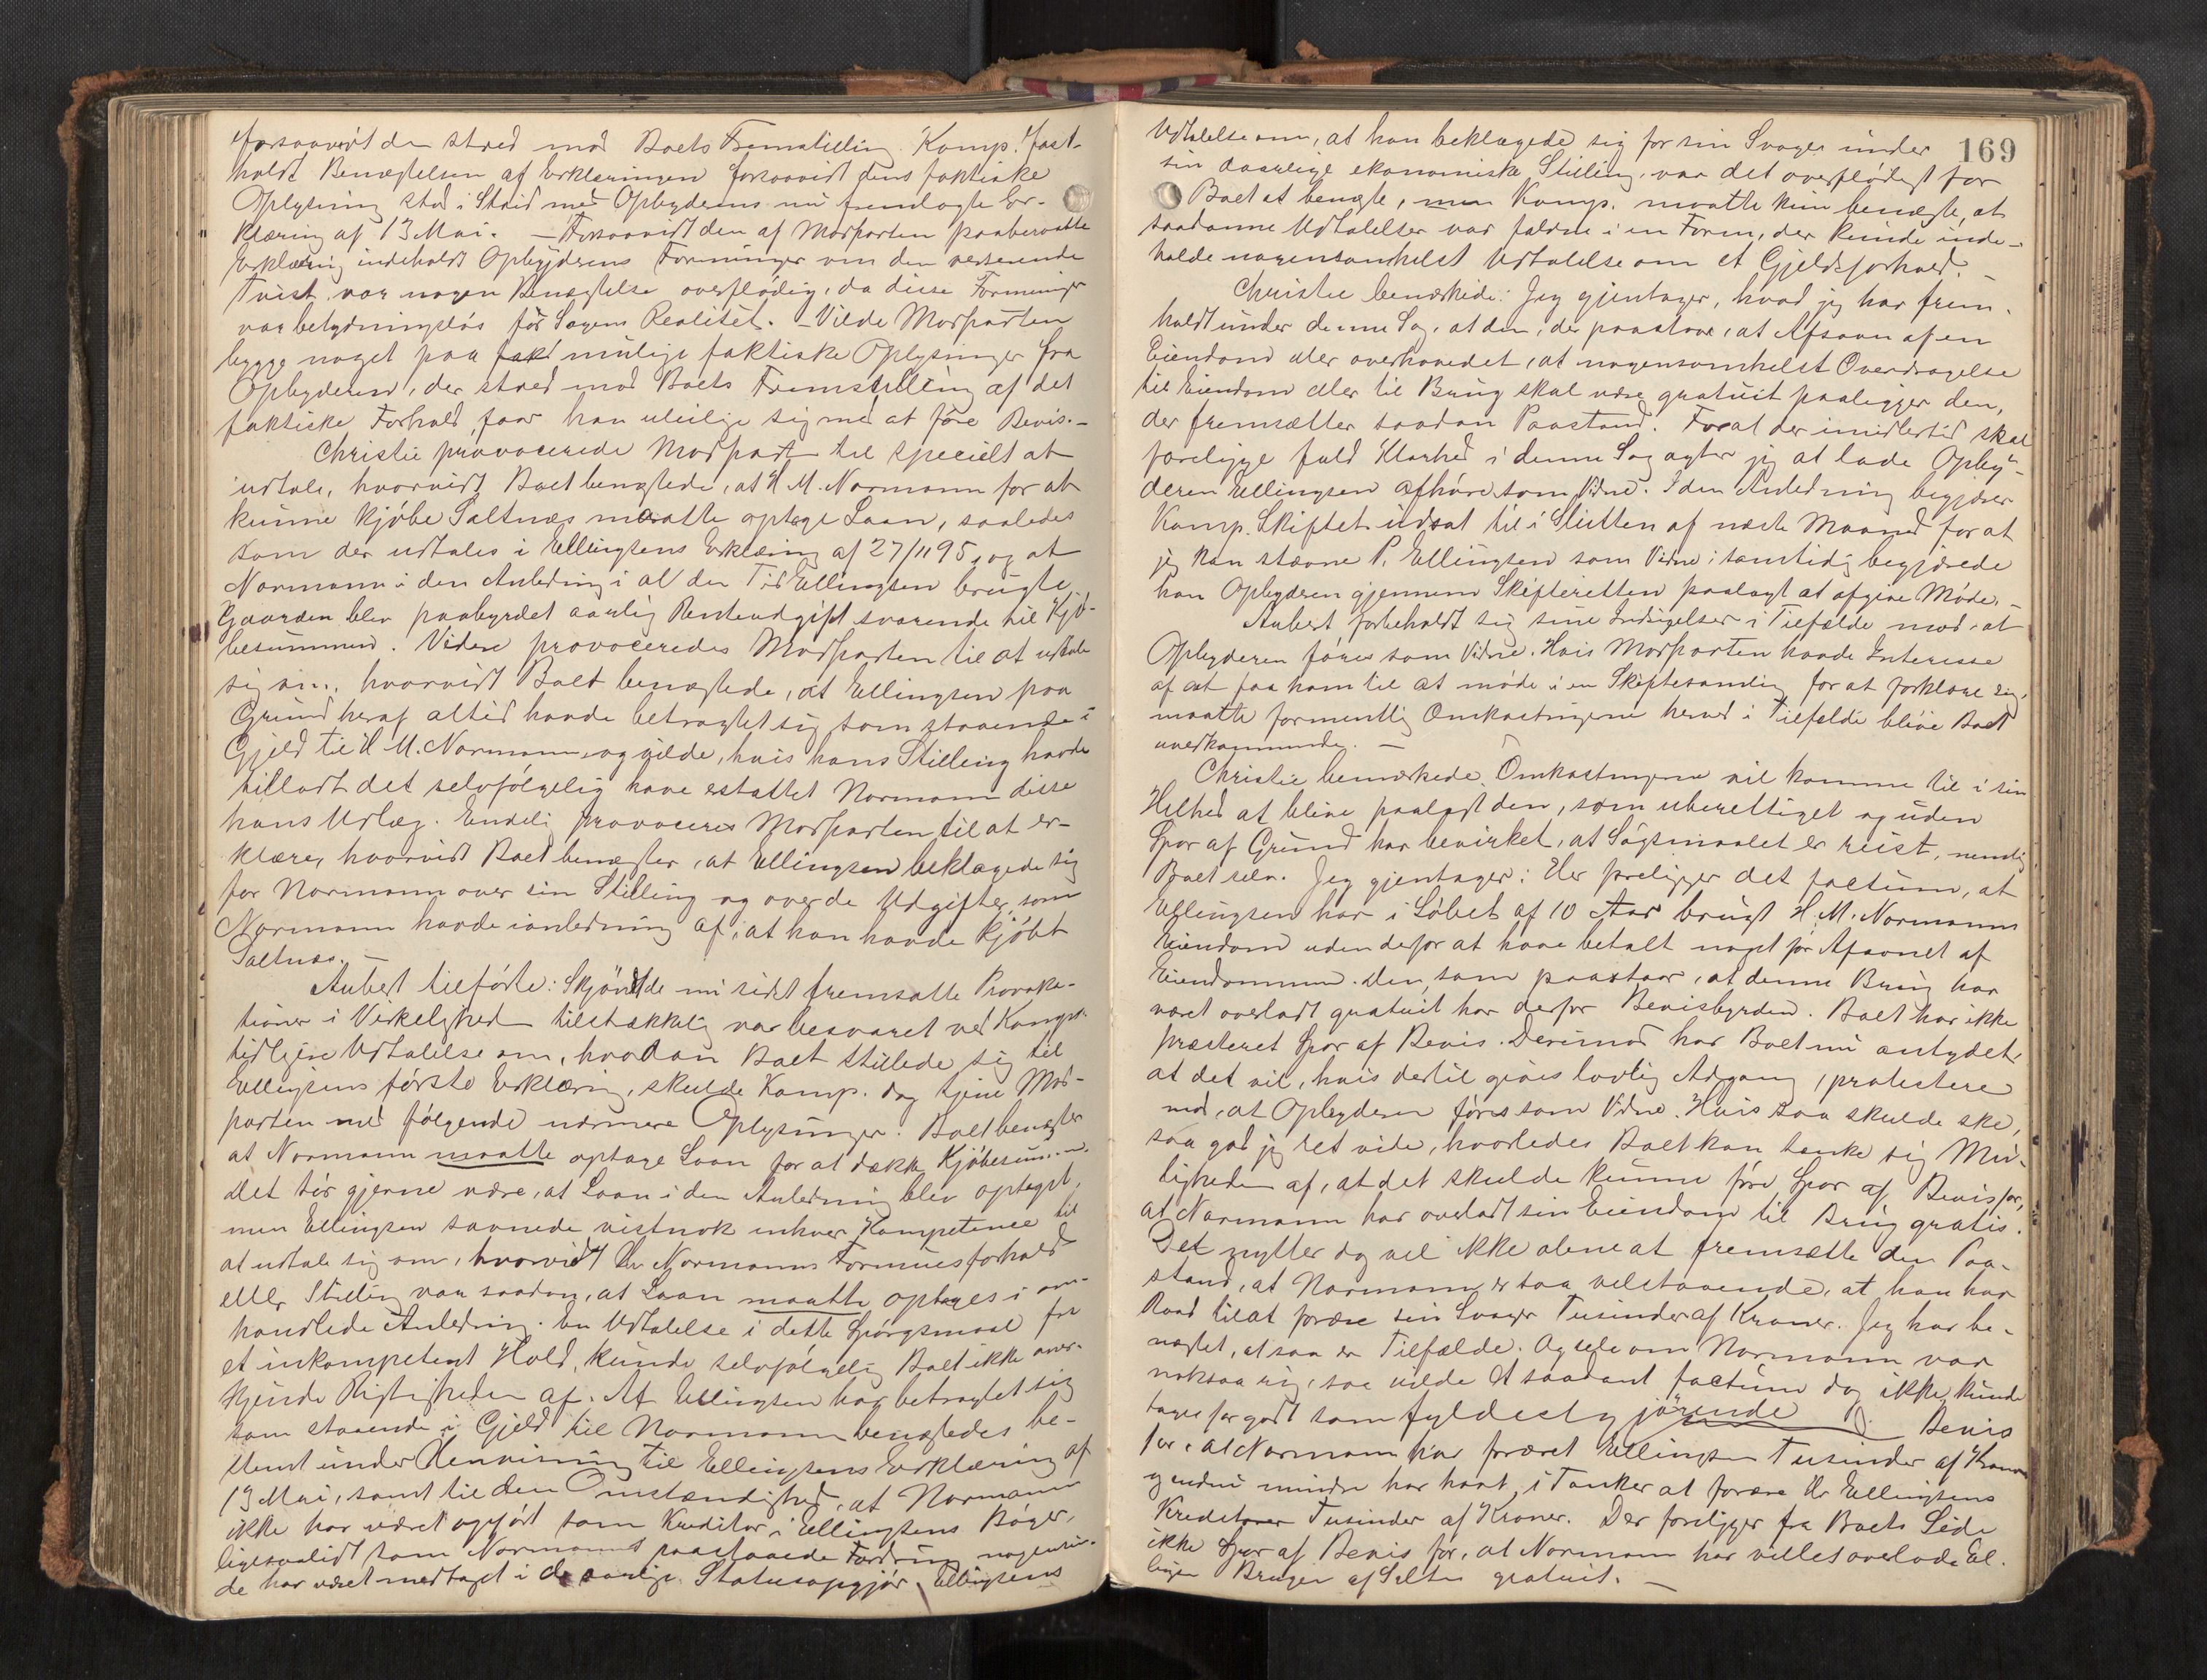 forsaavidt den stred mod Boets Fremstilling. Komp. fast-
holdt Benægtelsen af Erklæringen forsaavidt dens faktiske
Oplysning stod i Strid med Opbyderens nu fremlagte Er-
klæring af 13 Mai. — Forsaavidt den af Modparten paaberaabte
Erklæring indeholdt Opbyderens Formninger om den verserende
Tvist, var nogen Benægtelse overflødig, da disse Formninger
var betydningsløs for Sagens Realitet. — Vilde Modparten
bygge noget paa mulige faktiske Oplysninger fra
Opbyderen, der stred mod Boets Fremstilling af det
faktiske Forhold, faar han uleilige sig med at føre Bevis. —
Christie provocerede Modpart til specielt at
udtale, hvorvidt Boet benegtede, at H. M. Normann for at
kunne kjøbe Saltnæs maatte optage Laan, saaledes
som der udtales i Ellingsens Erklæring af 27/11 95, og at
Normann i den Anledning i al den Tid Ellingsen brugte
Gaarden blev paabyrdet aarlig Renteudgift svarende til Kjø-
besummen. Videre provoceredes Modparten til at udtale
sig om, hvorvidt Boet benægtede, at Ellingsen paa
Grund heraf altid havde betragtet sig som staaende i
Gjeld til H. M. Normann, og vilde, hvis hans Stilling havde
tilladt det selvfølgelig have erstattet Normann disse
hans Udlæg. Endelig provoceres Modparten til at er-
klære, hvorvidt Boet benægter, at Ellingsen beklagede sig
for Normann over sin Stilling og over de Udgifter, som
Normann havde i anledning af, at han havde kjøbt
Saltnæs. —
Aubert tilførte: Skjøndt de nu sidst fremsatte Provoka-
tioner i Virkelighed tilstrækkelig var besvaret ved Komp.
tidligere Udtalelse om, hvordan Boet stillede sig til
Ellingsens første Erklæring, skulde Komp. dog tjene Mod-
parten med følgende nærmere Oplysninger. Boet benægter
at Normann maatte optage Laan for at dække Kjøbesummen.
Det tør gjerne være, at Laan i den Anledning blev optaget,
men Ellingsen savnede vistnok enhver Kompetence til
at udtale sig om, hvorvidt Hr Normanns Formuesforhold
eller Stilling var saadan, at Laan maatte optages i om-
handlede Anledning. En Udtalelse i dette Spørgsmaal fra
et inkompetent Hold kunde selvfølgelig Boet ikke aner-
kjende Rigtigheden af. At Ellingsen har betragtet sig
som staaende i Gjeld til Normann benægtedes be-
stemt under Henvisning til Ellingsens Erklæring af
13 Mai, samt til den Omstændighed, at Normann
ikke har været opført som Kreditor i Ellingsens Bøger,
ligesaalidt som Normanns paastaaede Fordring nogensin-
de har været medtaget i de aarlige Statusopgjør. Ellingsens
169
Udtalelse om, at han beklagede sig for sin Svoger under
sin daarlige ekonomiske Stilling, var det overflødigt for
Boet at benægte, men Komp. maatte kun benægte, at
saadanne Udtalelser var faldne i en Form, der kunde inde-
holde nogensomhelst Udtalelse om et Gjeldsforhold. —
Christie bemærkede: Jeg gjentager, hvad jeg har frem-
holdt under denne Sag, at den, der paastaar, at Afsavn af en
Eiendom eller overhovedet, at nogensomhelst Overdragelse
til Eiendom eller til Brug skal være gratuit paaligger den,
der fremsætter saadan Paastand. For at der imidlertid skal
foreligge fuld Klarhed i denne Sag agter jeg at lade Opby-
deren Ellingsen afhøre som Vidne. I den Anledning begjærer
Komp. Skiftet udsat til i Slutten af næste Maaned for at
jeg kan stævne P. Ellingsen som Vidne; samtidig begjærede
han Opbyderen gjennem Skifteretten paalagt at afgive Møde. —
Aubert forbeholdt sig sine Indsigelser i Tilfælde mod, at
Opbyderen føres som Vidne. Hvis Modparten havde Interesse
af at faa ham til at møde i en Skiftesamling for at forklare sig,
maatte formentlig Omkostningerne herved i Tilfelde blive Boet
uvedkommende. —
Christie bemærkede: Omkostningerne vil komme til i sin
Helhed at blive paalagt den, som uberettiget og uden
Spor af Grund har bevirket, at Søgsmaalet er reist, nemlig
Boet selv. Jeg gjentager: Her foreligger det factum, at
Ellingsen har i Løbet af 10 Aar brugt H. M. Normanns
Eiendom uden derfor at have betalt noget for Afsavnet af
Eiendommen. Den, som paastaar, at denne Brug har
været overladt gratuit har derfor Bevisbyrden. Boet har ikke
præsteret Spor af Bevis. Derimod har Boet nu antydet,
at det vil, hvis dertil gives lovlig Adgang, protestere
mod, at Opbyderen føres som Vidne. Hvis saa skulde ske,
saa gad jeg ret vide, hvorledes Boet kan tænke sig Mu-
ligheden af, at det skulde kunne føre Spor af Bevis for,
at Normann har overladt sin Eiendom til Brug gratis.
Det nytter dog vel ikke alene at fremsætte den Paa-
stand, at Normann er saa velstaaende, at han har
Raad til at forære sin Svoger Tusinder af Kroner. Jeg har be-
nægtet, at saa er Tilfælde. Og selv om Normann var
noksaa rig, saa vilde et saadant factum dog ikke kunde
tages for godt som fyldestgjørende Bevis
for, at Normann har foræret Ellingsen Tusinder af Kroner
og endnu mindre har havt i Tanker at forære Hr Ellingsens
Kreditorer Tusinder af Kroner. Der foreligger fra Boets Side
ikke Spor af Bevis for, at Normann har villet overlade El-
lingsen Brugen af Saltnæs gratuit. —